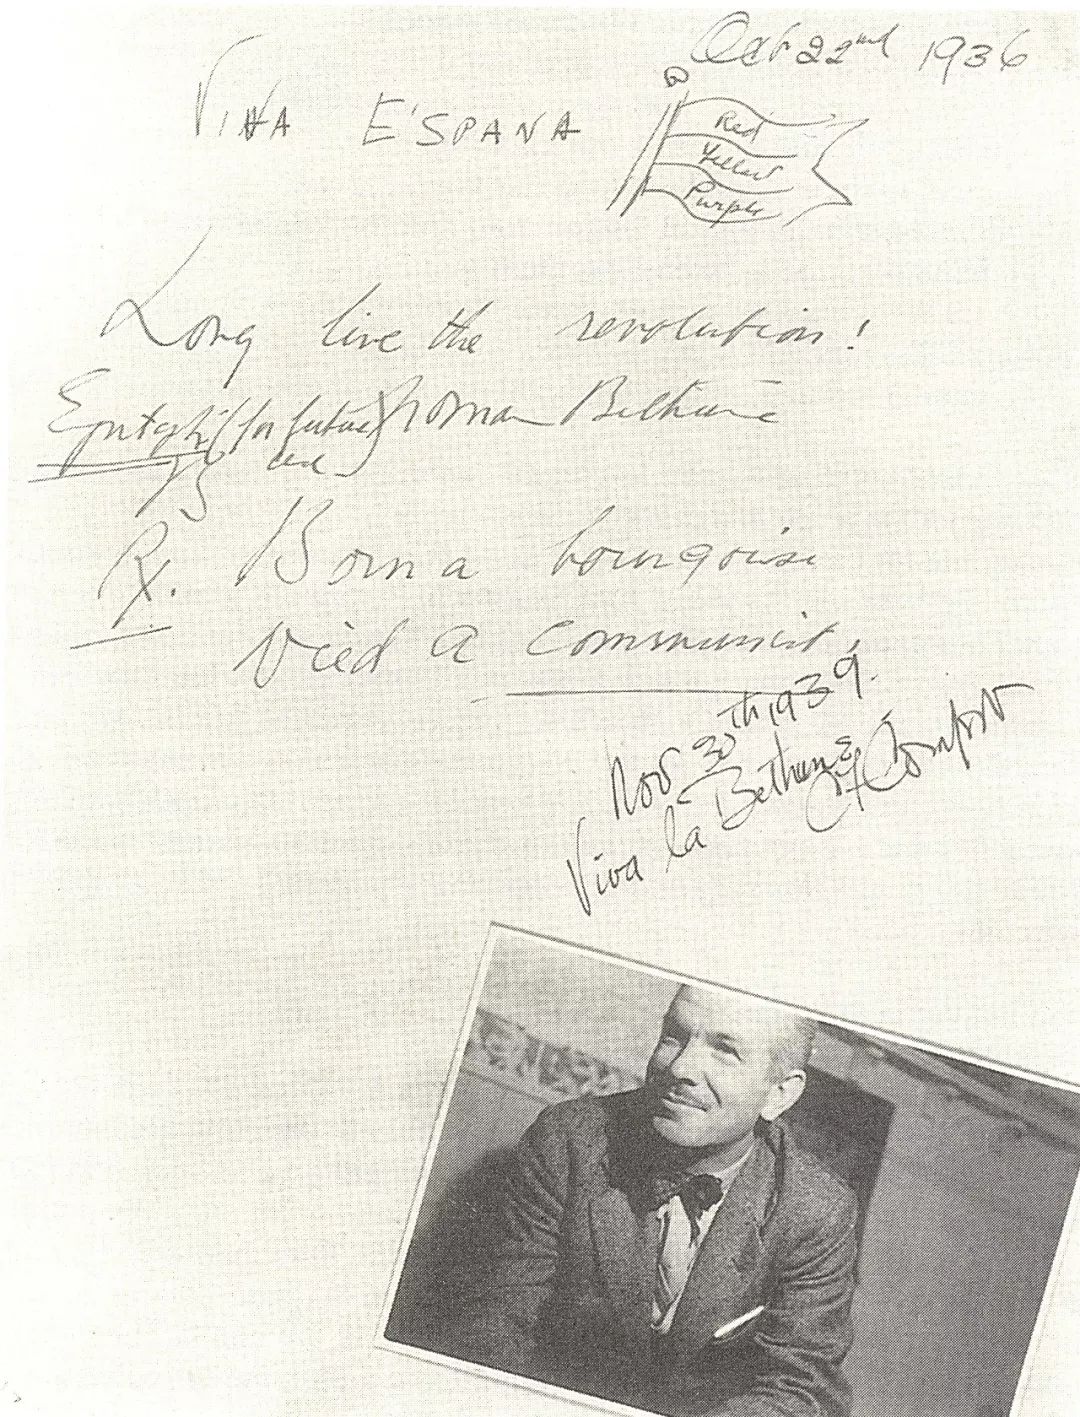 Oct 22nd 1936
VIVA E'SPANA
Red
Yellow
Purple
Long live the revolution!
Norman Bethune
Epitaph (for future
use)
Rx. Born a bourgoise
Died a communist.
Nov 30th 1939.
Viva la Bethune